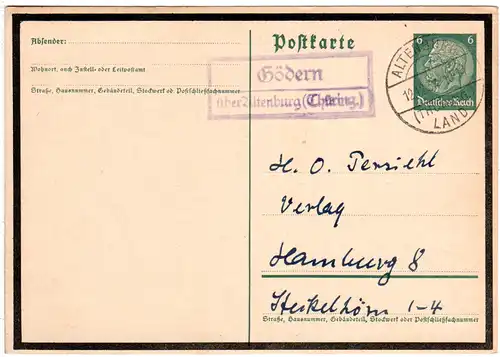 Absender:
Postkarte
Wohnort, auch Zustell- oder Leitpostamt
Straße, Hausnummer, Gebäudeteil, Stockwerk od. Postschließfachnummer
Gödern
über Altenburg (Thüring.)
6 6
Deutsches Reich
LAND
H. O. Persiehl
Verlag
Hamburg 8
Steckelhörn 1-4
Straße, Hausnummer, Gebäudeteil, Stockwerk oder Postschließfachnummer